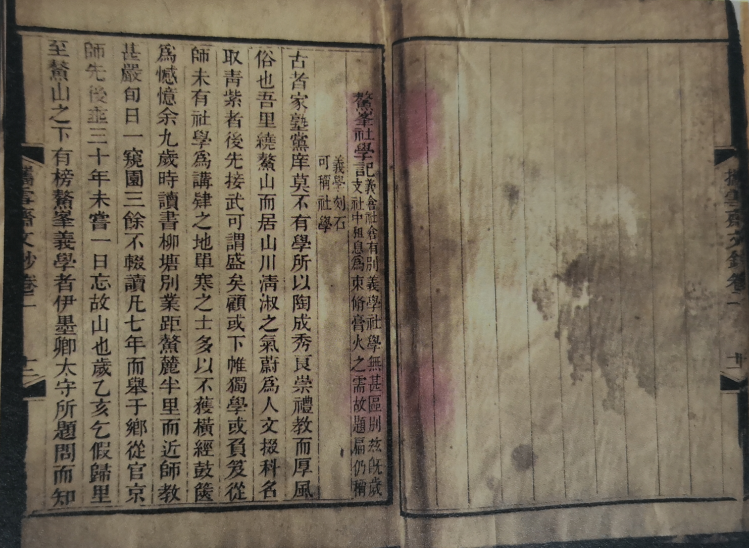 雪齋文鈔卷一
十一
鰲峯社學記
義會社會有別義學社學無甚區別玆旣歲
支社中租息爲束脩膏火之需故題扁仍稱
義學刻石
可稱社學
古者家塾黨庠莫不有學所以陶成秀良崇禮教而厚風
俗也吾里繞鰲山而居山川清淑之氣蔚爲人文掇科名
取青紫者後先接武可謂盛矣顧或下帷獨學或負笈從
師未有社學爲講肄之地單寒之士多以不獲橫經鼓篋
爲憾憶余九歲時讀書柳塘別業距鰲麓半里而近師教
甚嚴旬日一窺園三餘不輟讀凡七年而舉于鄉從官京
師先後並三十年未嘗一日忘故山也歲乙亥乞假歸里
至鰲山之下有榜鰲峯義學者伊墨卿太守所題問而知
攜雪齋文鈔卷一
十二